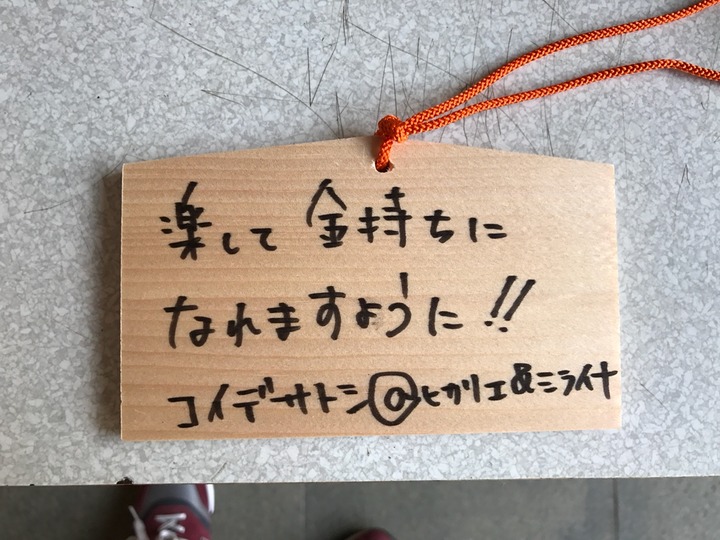 楽して金持ちに
なれますように!!
コイデサトシ@ヒカリエ&ミライナ